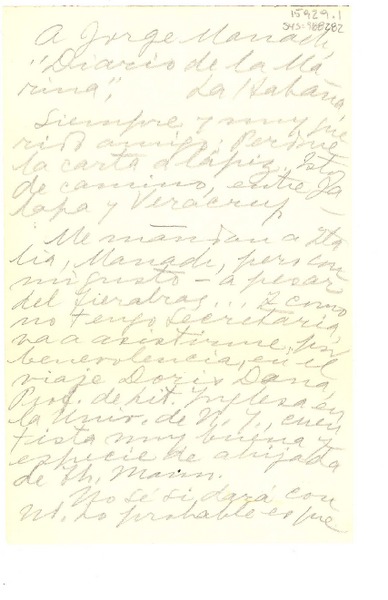 15929.1
sys: 968282
A Jorge Mañach,
"Diario de la Ma
rina", La Habana
Siempre y muy que
rido amigo: Perdone
la carta a lápiz. Estoy
de camino, entre Ja
lapa y Veracruz
Me mandan a Ita
lia, Mañach, pero con
mi gusto - a pesar
del Fierabrás... Y como
no tengo secretaria,
va a asistirme, por
benevolencia, en el
viaje Doris Dana,
Prof. de Lit. Inglesa en
la Univ. de N. Y., cuen
tista muy buena y
especie de ahijada
de Th. Mann.
No sé si dará con
Ud. Lo probable es que